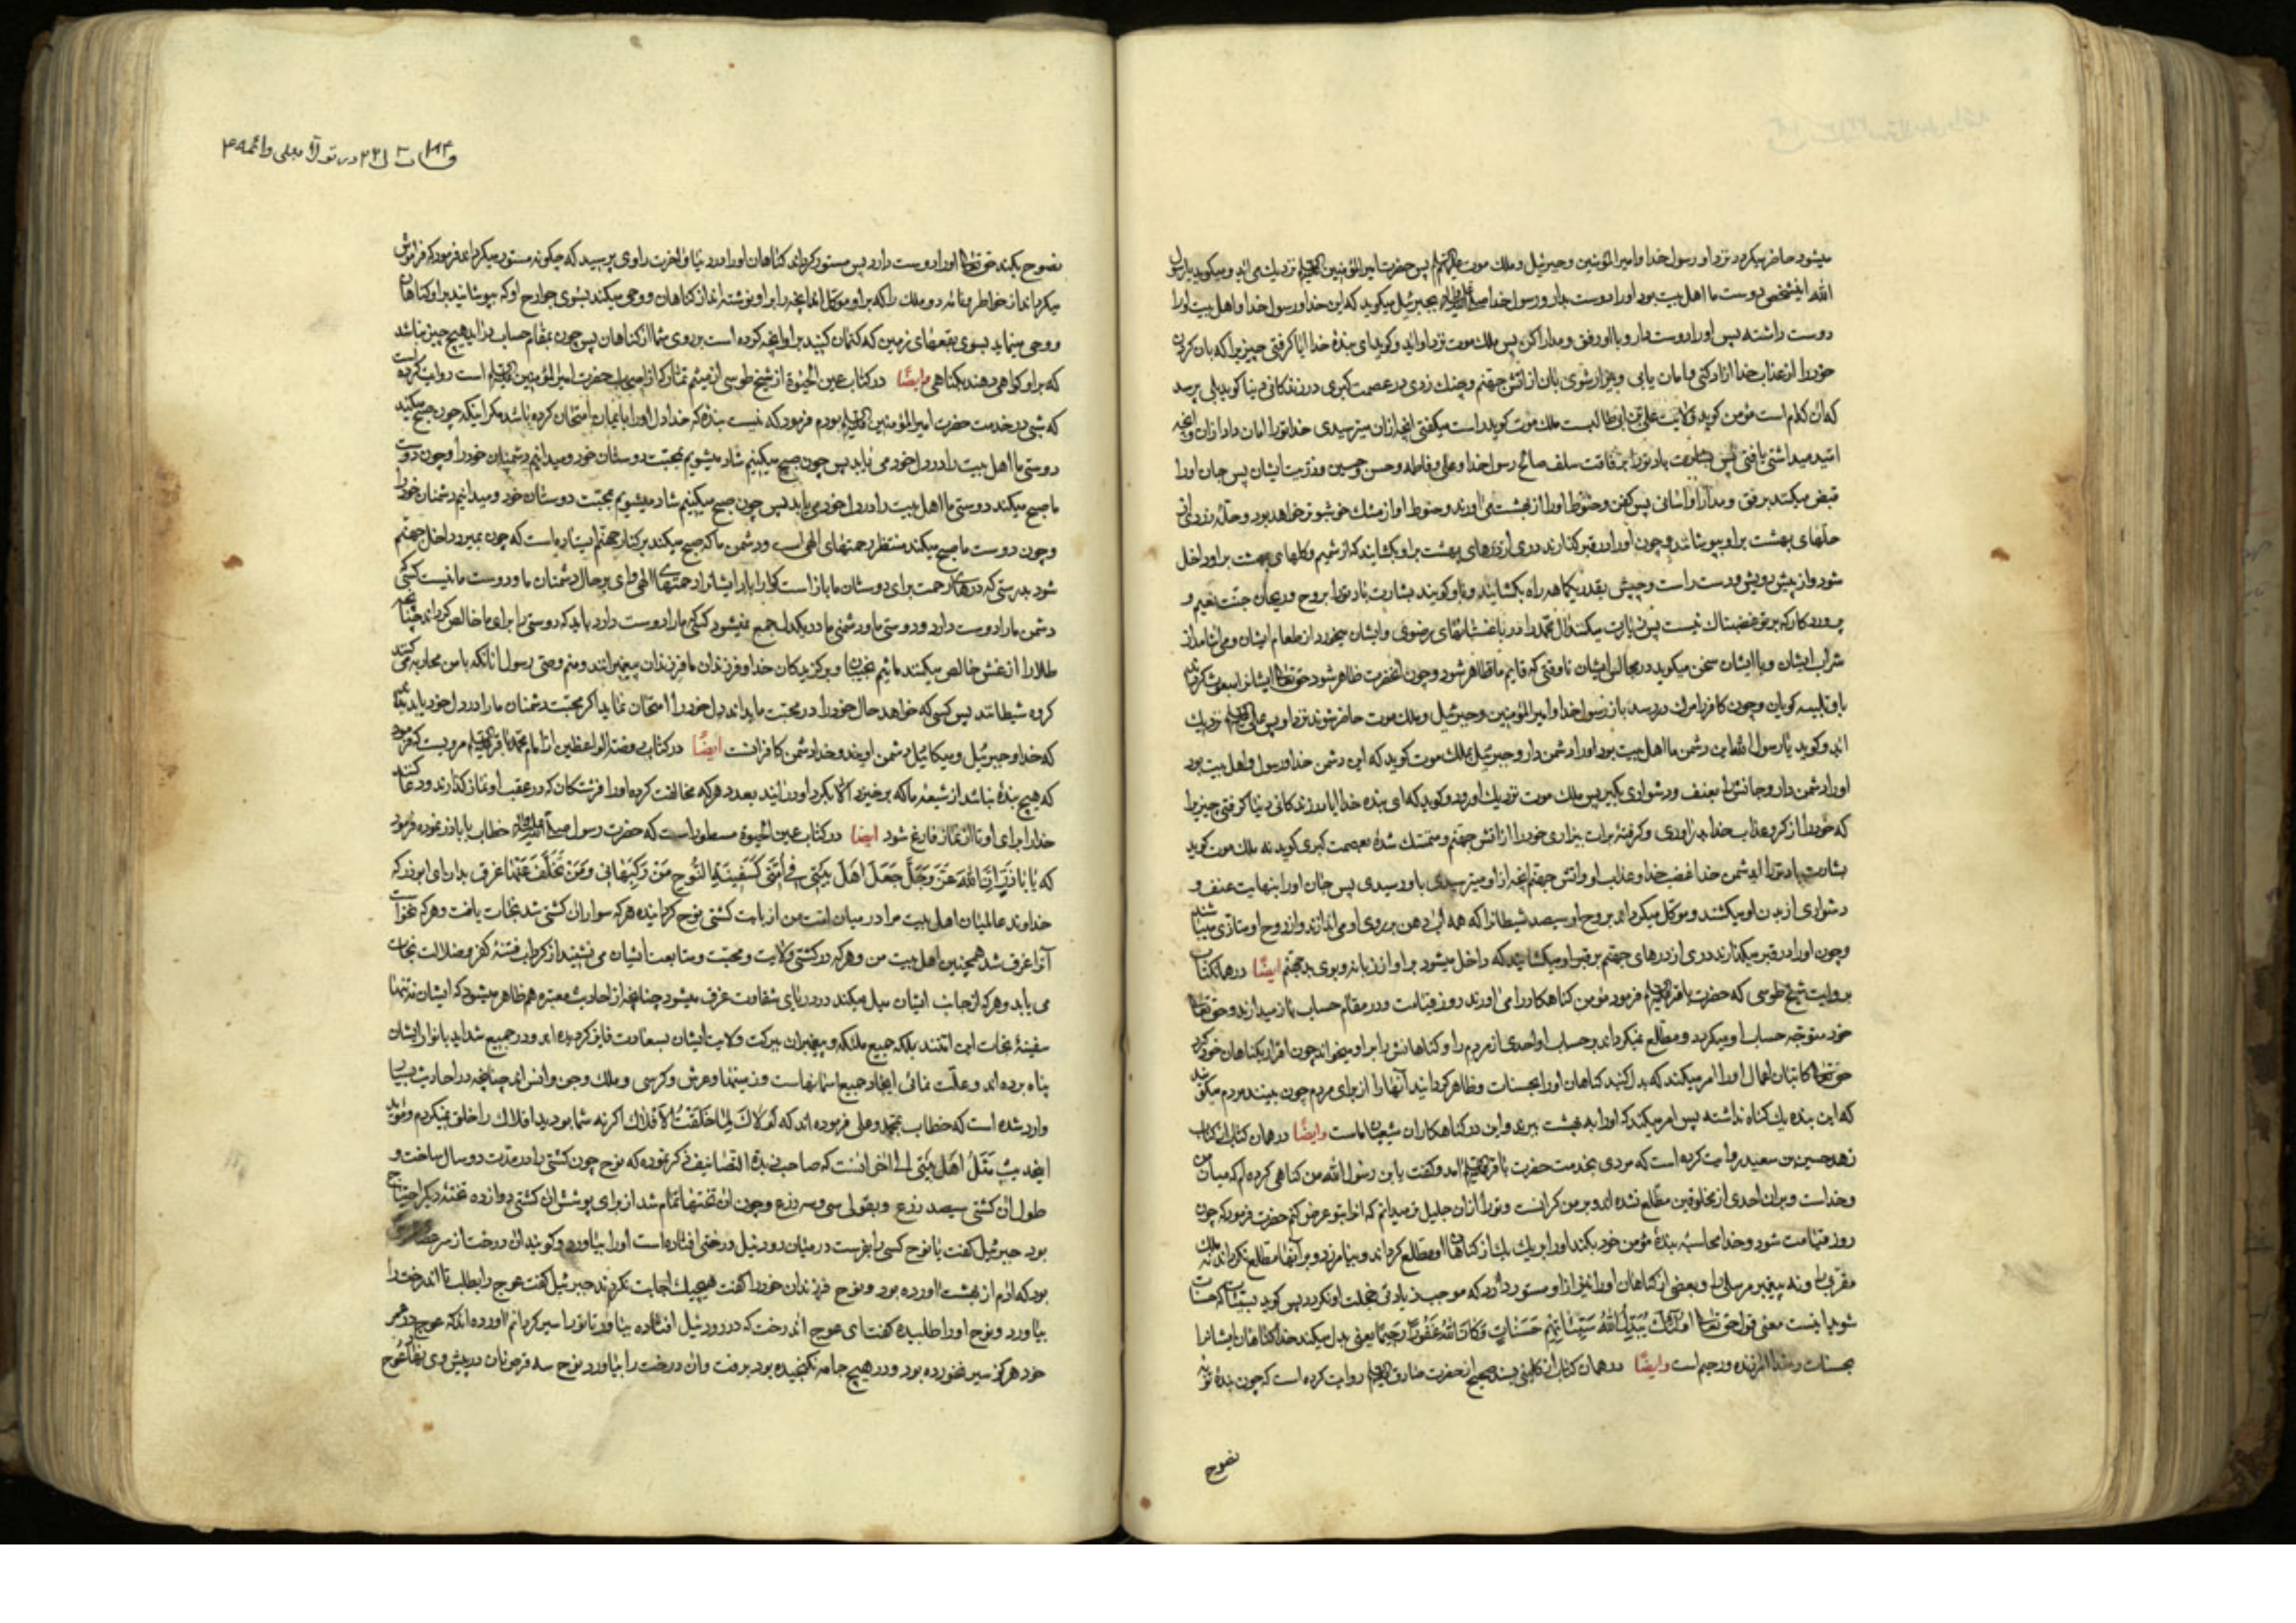 میشود حاضر میگردد نزد او رسول خدا و امیر المؤمنین و جبرئیل و ملک موت علیهم السلام پس حضرت امیر المؤمنین علیه السلام نزدیک می اید و میکوید یا رسول
الله اینشخص دوست ما اهل بیت بود او را دوست بدار و رسول خدا صلی الله علیه وآله بجبرئیل میکوید که این خدا و رسول خدا و اهل بیت او را
دوست داشته پس او را دوست دار و با او رفق و مدارا کن پس ملک موت نزد او اید و کوید ای بندهٔ خدا ایا کرفتی چیزیرا که بان کردن
خود را از عذاب خدا ازاد کنی و امان یابی و بیزار شوی بان از اتش جهنم و چنک زدی در عصمت کبری در زندکانی دنیا کوید بلی پرسد
که ان کدام است مؤمن کوید ولایت علی بن ابی طالبست ملک موت کوید راست میکفتی انچه ازان میترسیدی خدا تو را امان داد ازان و انچه
امید میداشتی یافتی پس بشارت باد تو را برفاقت سلف صالح رسول خدا و علی و فاطمه و حسن و حسین و ذریت ایشان پس جان او را
قبض میکند برفق و مدارا و اسانی پس کفن و حنوط او را از بهشت می اورند و حنوط او از مشک خوشبوتر خواهد بود و حلهٔ زردی از
حلهای بهشت براو بپوشانند و چون او را در قبر کذارند دری از درهای بهشت براو بکشایند که از شمیم و کلهای بهشت براو داخل
شود و از پیش رویش و دست راست و چپش بقدر یکماهه راه بکشایند و باو کویند بشارت باد تو را بروح و ریحان جنت نعیم و
پروردکار که بر تو غضبناک نیست پس زیارت میکند ال محمد را در باغستانهای رضوی و با ایشان میخورد از طعام ایشان و می اشامد از
شراب ایشان و با ایشان سخن میکوید در مجالس ایشان تا وقتی که قایم ما ظاهر شود و چون انحضرت ظاهر شود حق تعالی ایشانرا مبعوث کرداند
با و تلبیه کویان و چون کافر را مرک در رسد باز رسول خدا و امیر المؤمنین و جبرئیل و ملک موت حاضر شوند نزد او پس علی علیه السلام نزدیک
اید و کوید یا رسول الله این دشمن ما اهل بیت بود او را دشمن دار و جبرئیل بملک موت کوید که این دشمن خدا و رسول و اهل بیت بود
او را دشمن دار و جانش را بعنف و دشواری بکیر پس ملک موت نزدیک او رود و کوید که ای بنده خدا ایا در زندکانی دنیا کرفتی چیزیرا
که خود را از کرو عذاب خدا بدر اوری و کرفتهٔ برات بیزاری خود را از اتش جهنم و متمسک شدهٔ بعصمت کبری کوید نه ملک موت کوید
بشارت باد تو را ایدشمن خدا غضب خدا و عذاب او و اتش جهنم انچه از او میترسیدی باو رسیدی پس جان او را بنهایت عنف و
دشواری از بدن او میکشند و موکل میکرداند بروح او سیصد شیطانرا که همه اب دهن بر روی او می اندازند و از روح او متاذی میباشند
و چون او را در قبر میکذارند دری از درهای جهنم بر قبر او میکشایند که داخل میشود بر او از زبانه و بوی بد جهنم ایضًا در همانکتاب
بروایت شیخ طوسی که حضرت باقر علیه السلام فرمود مؤمن کناهکار را می اورند روز قیامت و در مقام حساب باز میدارند و حق تعالی
خود متوجه حساب او میکردد و مطلع نمیکرداند بر حساب او احدی از مردم را و کناهانش را بر او میخواند چون اقرار بکناهان خود کرد
حق تعالی کاتبان اعمال او را امر میکند که بدل کنید کناهان او را بحسنات و ظاهر کردانید انها را از برای مردم چون ببینند مردم میکویند
که این بنده یک کناه نداشته پس امر میکند که او را به بهشت برند و این در کناهکاران شیعیان ماست وایضًا در همان کتاب از کتاب
زهد حسین بن سعید روایت کرده است که مردی بخدمت حضرت باقر علیه السلام امد و کفت یا بن رسول الله من کناهی کرده ام که میان من
و خداست و بران احدی از مخلوقین مطلع نشده اند و بر من کرانست و تو را ازان جلیل تر میدانم که انرا بتو عرض کنم حضرت فرمود که چون
روز قیامت شود و خدا محاسبهٔ بندهٔ مؤمن خود بکند او را بر یک یک از کناهان او مطلع کرداند و بیامرزد و بر انها مطلع نکرداند نه ملک
مقربی را و نه پیغمبر مرسلی را و بعضی از کناهان او را نیز از او مستور دارد که موجب زیادتی خجلت او نکردد پس کوید بسیئات که حسنات
شوید اینست معنی قول حق تعالی اُولٰئِكَ يُبَدِّلُ اللهُ سَيِّئَاتِهِمْ حَسَنَاتٍ وَكَانَ اللهُ غَفُورًا رَحِيمًا یعنی بدل میکند خدا کناهان ایشانرا
بحسنات و خدا امرزنده و رحیم است وایضًا در همان کتاب از کلینی بسند صحیح از حضرت صادق علیه السلام روایت کرده است که چون بندهٔ توبه
نصوح
در تولا بعلی وائمه
نصوح بکند حق تعالی او را دوست دارد پس مستور کرداند کناهان او را در دنیا و اخرت راوی پرسید که چکونه مستور میکرداند فرمود که فراموش
میکرداند از خاطر دو ملک را که بر او موکل اند انچه را بر او نوشته اند از کناهان و وحی میکند بسوی جوارح او که بپوشانید بر او کناهان
و وحی مینماید بسوی بقعهای زمین که کتمان کنید بر او انچه کرده است بر روی شما از کناهان پس چون بمقام حساب دراید هیچ چیز نباشد
که بر او کواهی دهند بکناهی وایضًا در کتاب عین الحیوة از شیخ طوسی از میثم تمار که از اصحاب حضرت امیر المؤمنین علیه السلام است روایت کرده
که شبی در خدمت حضرت امیر المؤمنین علیه السلام بودم فرمود که نیست بندهٔ که خدا دل او را بایمان امتحان کرده باشد مکر اینکه چون صبح میکند
دوستی ما اهل بیت را در دل خود می یابد پس چون صبح میکنیم شاد میشویم بمحبت دوستان خود و میدانیم دشمنان خود را و چون دوست
ما صبح میکند دوستی ما اهل بیت را در دل خود می یابد پس چون صبح میکنیم شاد میشویم بمحبت دوستان خود و میدانیم دشمنان خود را
و چون دوست ما صبح میکند منتظر رحمتهای الهی است و دشمن ما که صبح میکند بر کنار جهنم ایستاده است که چون بمیرد داخل جهنم
شود بدرستی که درهای رحمت برای دوستان ما باز است کوارا باد ایشانرا رحمتهای الهی وای بر حال دشمنان ما و دوست ما نیست کسی که
دشمن ما را دوست دارد و دوستی ما و دشمنی ما در یکدل جمع نمیشود کسی که ما را دوست دارد باید که دوستی را برای ما خالص کرداند چنانچه
طلا را از غش خالص میکنند مائیم نجیبان و برکزیدکان خدا و فرزندان ما فرزندان پیغمبرانند و منم وصی رسول انانکه با من محاربه می کنند
کروه شیطانند پس کسی که خواهد حال خود را در محبت ما بداند دل خود را امتحان نماید اکر محبت دشمنان ما را در دل خود یابد بداند
که خدا و جبرئیل و میکائیل دشمن اویند و خدا دشمن کافرانست ایضًا در کتاب روضة الواعظین از امام محمد باقر علیه السلام مرویست که فرمود
که هیچ بندهٔ نباشد از شیعهٔ ما که برخیزد الا بکرد او در ایند بعدد هرکه مخالفت کرده او را فرشتکان که در عقب او نماز کذارند و دعا کنند
خدا را برای او تا از نماز فارغ شود ایضا در کتاب عین الحیوة مسطور است که حضرت رسول صلی الله علیه وآله خطاب باباذر نموده فرمود
که یٰا اَبٰا ذَرٍّ اِنَّ اللهَ عَزَّ وَجَلَّ جَعَلَ اَهْلَ بَيْتِي فِي اُمَّتِي كَسَفِينَةِ النُّوحِ مَنْ رَكِبَهٰا نَجٰى وَمَنْ تَخَلَّفَ عَنْهٰا غَرِقَ بدان ای ابوذر که
خداوند عالمیان اهل بیت مرا در میان امت من از بابت کشتی نوح کردانیده هرکه سوار ان کشتی شد نجات یافت و هرکه نخواست
انرا غرق شد همچنین اهل بیت من و هرکه در کشتی ولایت و محبت و متابعت ایشان می نشیند از کرداب فتنهٔ کفر و ضلالت نجات
می یابد و هرکه از جانب ایشان میل میکند در دریای شقاوت غرق میشود چنانچه از احادیث معتبره هم ظاهر میشود که ایشان نه تنها
سفینهٔ نجات این امتند بلکه جمیع ملئکه و پیغمبران ببرکت ولایت ایشان بسعادت فایز کردیده اند و در جمیع شداید بانوار ایشان
پناه برده اند و علت غائی ایجاد جمیع اسمانهاست و زمینها و عرش و کرسی و ملک و جن و انس اند چنانچه در احادیث بسیار
وارد شده است که خطاب بمحمد و علی فرموده اند که لَوْلاٰكَ لَمٰا خَلَقْتُ الْاَفْلاٰكَ اکر نه شما بودید افلاک را خلق نمیکردم و مؤید
اینحدیث مَثَلُ اَهْلِ بَيْتِي الی اخرانست که صاحب زبدة التصانیف ذکر نموده که نوح چون کشتی را در مدت دو سال ساخت و
طول ان کشتی سیصد ذرع و بقولی سی و سه ذرع و چون ان تختها تمام شد از برای پوشش ان کشتی دوازده تختهٔ دیکر احتیاج
بود جبرئیل کفت یا نوح کسی را بفرست در میان رود نیل درختی افتاده است او را بیاورد و کویند ان درخت از
بود که ادم از بهشت اورده بود و نوح فرزندان خود را کفت هیچیک اجابت نکردند جبرئیل کفت عوج را بطلب تا اندرخت را
بیاورد و نوح او را طلبیده کفت ای عوج اندرخت که در رود نیل افتاده بیاور تا تو را سیر کردانم اورده اند که عوج در عمر
خود هرکز سیر نخورده بود و در هیچ جامه نکنجیده بود برفت و ان درخت را بیاورد نوح سه قرص نان در پیش وی نهاد عوج